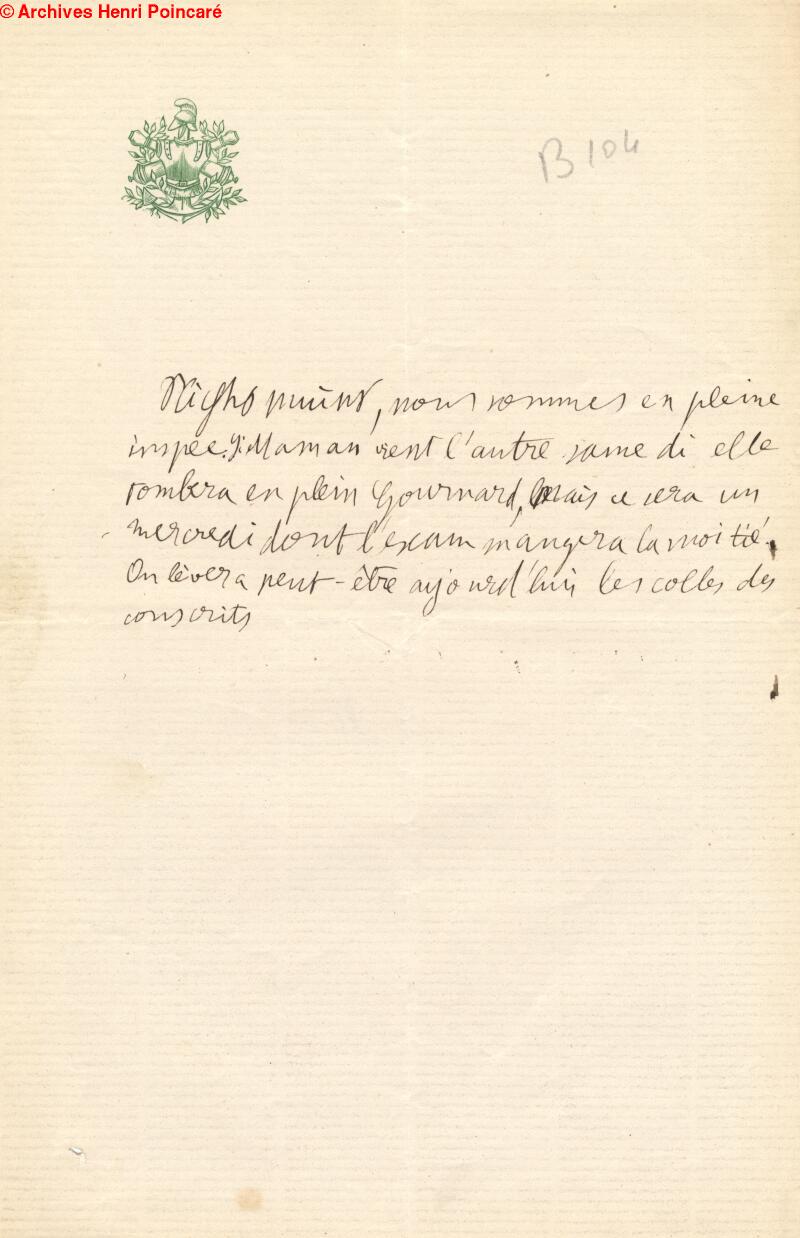 © Archives Henri Poincaré
B 104
nous sommes en pleine
inspec. Si Maman vient l'autre samedi elle
tombera en plein Gournard, mais ce sera un
mercredi dont l'exam mangera la moitié.
On lèvera peut-être aujourd'hui les colles des
conscrits